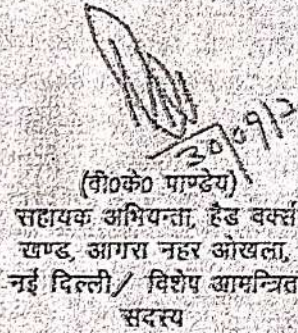 30/09/2
(वी०के० पाण्डेय)
सहायक अभियन्ता, हैड वर्क्स
खण्ड, आगरा नहर ओखला,
नई दिल्ली/ विशेष आमन्त्रित
सदस्य